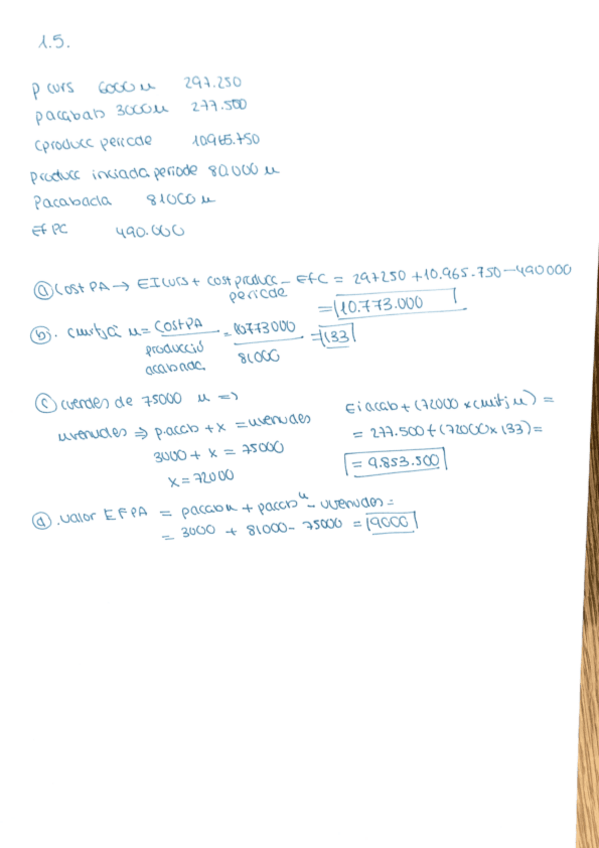 1.5.
p curs 6000 u 297.250
p acabats 3000 u 277.500
c producc periode 10965.750
producc iniciada periode 80.000 u
P acabada 81000 u
Ef PC 490.000
ⓐ Cost PA → EI curs + cost producc periode - EfC = 297250 + 10.965.750 - 490000
= 10.773.000
ⓑ. c mitjà u = Cost PA / producció acabada = 10773000 / 81000 = 133
ⓒ c vendes de 75000 u =>
u venudes => p. accb + x = u venudes
3000 + x = 75000
x = 72000
Ei acab + (72000 x c mitj u) =
= 277.500 + (72000 x 133) =
= 9.853.500
ⓓ. valor EFPA = p accb u + p accb u - u venudes =
= 3000 + 81000 - 75000 = 9000